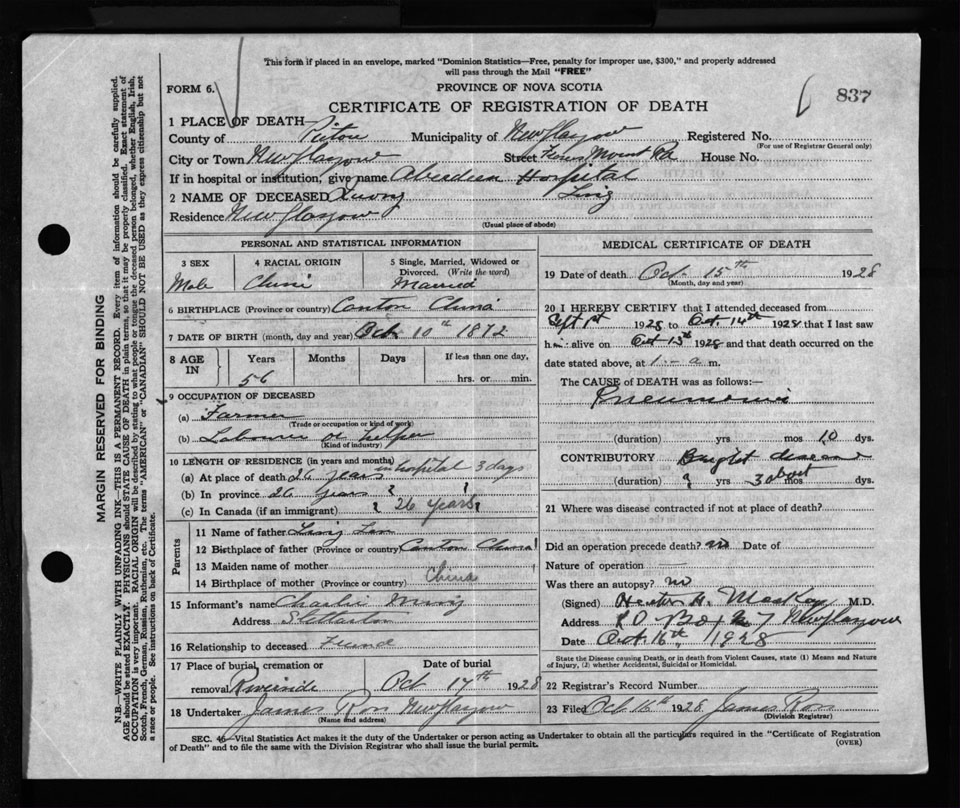 This form if placed in an envelope, marked "Dominion Statistics—Free, penalty for improper use, $300," and properly addressed
will pass through the Mail "FREE"
FORM 6.
PROVINCE OF NOVA SCOTIA
CERTIFICATE OF REGISTRATION OF DEATH
837
1 PLACE OF DEATH
County of Pictou Municipality of New Glasgow Registered No.
(For use of Registrar General only)
City or Town New Glasgow Street Mount Rd House No.
If in hospital or institution, give name Aberdeen Hospital
2 NAME OF DECEASED Ling
Residence New Glasgow
(Usual place of abode)
PERSONAL AND STATISTICAL INFORMATION
3 SEX
Male
4 RACIAL ORIGIN
Chini
5 Single, Married, Widowed or Divorced. (Write the word)
Married
6 BIRTHPLACE (Province or country) Canton China
7 DATE OF BIRTH (month, day and year) Oct. 10th 1872
8 AGE IN
Years Months Days If less than one day,
56 hrs. or min.
9 OCCUPATION OF DECEASED
(a) Farmer
(Trade or occupation or kind of work)
(b) Labourer or helper
(Kind of industry)
10 LENGTH OF RESIDENCE (in years and months)
(a) At place of death 26 years in hospital 3 days
(b) In province 26 years
(c) In Canada (if an immigrant) 26 years
Parents
11 Name of father Ling
12 Birthplace of father (Province or country) Canton China
13 Maiden name of mother
14 Birthplace of mother (Province or country) China
15 Informant's name Charlie
Address Stellarton
16 Relationship to deceased Friend
17 Place of burial, cremation or removal Riverside
Date of burial
Oct 17th 1928
18 Undertaker James Ross New Glasgow
(Name and address)
MEDICAL CERTIFICATE OF DEATH
19 Date of death Oct. 15th 1928
(Month, day and year)
20 I HEREBY CERTIFY that I attended deceased from
Sept 1st 1928 to Oct. 14th 1928 that I last saw
him alive on Oct 13th 1928 and that death occurred on the
date stated above, at 1 - a m.
The CAUSE of DEATH was as follows:—
Pneumonia
(duration) yrs mos 10 dys.
CONTRIBUTORY Bright disease
(duration) yrs 3 about mos dys.
21 Where was disease contracted if not at place of death?
Did an operation precede death? no Date of
Nature of operation —
Was there an autopsy? no
(Signed) H. MacKay M.D.
Address P.O. Box New Glasgow
Date Oct 16th, 1928
State the Disease causing Death, or in death from Violent Causes, state (1) Means and
Nature of Injury, (2) whether Accidental, Suicidal or Homicidal.
22 Registrar's Record Number
23 Filed Oct 16th 1928 James Ross
(Division Registrar)
SEC. 46—Vital Statistics Act makes it the duty of the Undertaker or person acting as Undertaker to obtain all the particulars required in the "Certificate of Registration
of Death" and to file the same with the Division Registrar who shall issue the burial permit.
(OVER)
MARGIN RESERVED FOR BINDING
N.B.—WRITE PLAINLY WITH UNFADING INK—THIS IS A PERMANENT RECORD. Every item of information should be carefully supplied.
AGE should be stated EXACTLY. PHYSICIANS should STATE CAUSE OF DEATH in plain terms, so that it may be properly classified. Exact statement of
OCCUPATION is very important. RACIAL ORIGIN will be described by stating to what people or tongue the deceased person belonged, whether English, Irish,
Scotch, French, German, Russian, Ruthenian, etc. The terms "AMERICAN" or "CANADIAN" SHOULD NOT BE USED as they express citizenship but not
a race or people. See instructions on back of Certificate.